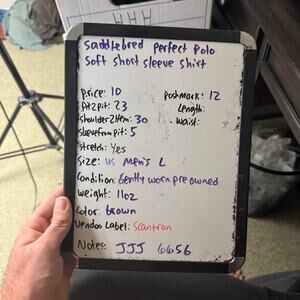 Saddlebred perfect Polo
Soft short sleeve shirt
Price: 10
Postmark: 12
Pit2pit: 23
Length:
Shoulder2Hem: 30
Waist:
Sleevefrompit: 5
Stretch: Yes
Size: US Men's L
Condition: Gently worn preowned
Weight: 11oz
Color: brown
Vendoo Label: Scantron
Notes: JJJ 6656